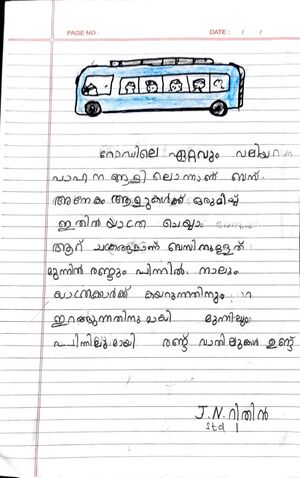 PAGE NO:
DATE: / /
റോഡിലെ ഏറ്റവും വലിയ
വാഹനങ്ങളിലൊന്നാണ് ബസ്.
അനേകം ആളുകൾക്ക് ഒരുമിച്ച്
ഇതിൽ യാത്ര ചെയ്യാം
ആറ് ചക്രങ്ങളാണ് ബസിനുള്ളത്
മുന്നിൽ രണ്ടും പിന്നിൽ. നാലും
യാത്രക്കാർക്ക് കയറുന്നതിനും
ഇറങ്ങുന്നതിനുമായി മുന്നിലും
പിന്നിലുമായി രണ്ട് വാതിലുകൾ ഉണ്ട്
J.N.റിതിൻ
std